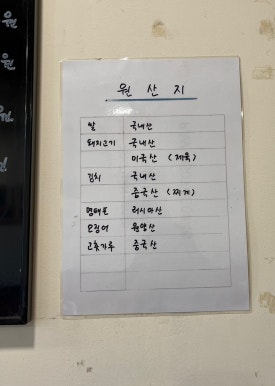 원
원
원
원
원 산 지
쌀 국내산
돼지고기 국내산
미국산 (제육)
김치 국내산
중국산 (찌개)
명태포 러시아산
오징어 원양산
고춧가루 중국산